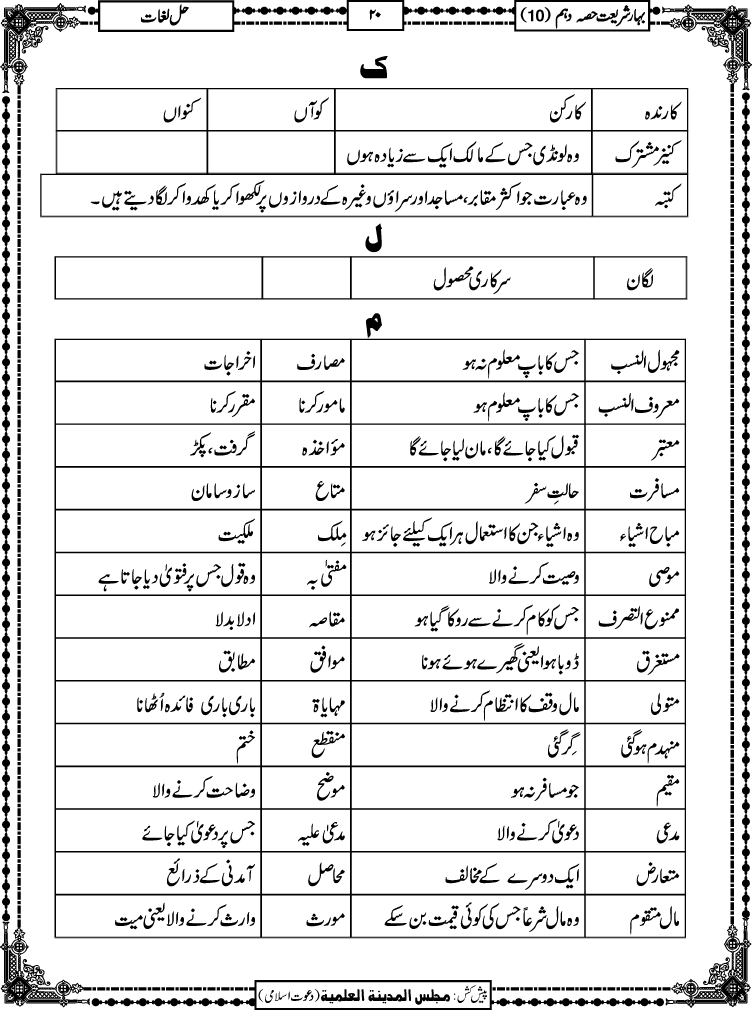 بہار شریعت حصہ دہم (10) ۲۰ حل لغات
ک
کارندہ کارکن کوآں کنواں
کنیز مشترک وہ لونڈی جس کے مالک ایک سے زیادہ ہوں
کتبہ وہ عبارت جو اکثر مقابر، مساجد اور سراؤں وغیرہ کے دروازوں پر لکھوا کر یا کھدوا کر لگا دیتے ہیں۔
ل
لگان سرکاری محصول
م
مجہول النسب جس کا باپ معلوم نہ ہو مصارف اخراجات
معروف النسب جس کا باپ معلوم ہو مامور کرنا مقرر کرنا
معتبر قبول کیا جائے گا، مان لیا جائے گا مؤاخذہ گرفت، پکڑ
مسافرت حالتِ سفر متاع ساز و سامان
مباح اشیاء وہ اشیاء جن کا استعمال ہر ایک کیلئے جائز ہو مِلک ملکیت
موصی وصیت کرنے والا مفتیٰ بہ وہ قول جس پر فتویٰ دیا جاتا ہے
ممنوع التصرف جس کو کام کرنے سے روکا گیا ہو مقاصہ ادلا بدلا
مستغرق ڈوبا ہوا یعنی گھیرے ہوئے ہونا موافق مطابق
متولی مال وقف کا انتظام کرنے والا مہایاۃ باری باری فائدہ اُٹھانا
منہدم ہو گئی گِر گئی منقطع ختم
مقیم جو مسافر نہ ہو موضح وضاحت کرنے والا
مدعی دعویٰ کرنے والا مدعیٰ علیہ جس پر دعویٰ کیا جائے
متعارض ایک دوسرے کے مخالف محاصل آمدنی کے ذرائع
مال متقوم وہ مال شرعاً جس کی کوئی قیمت بن سکے مورث وارث کرنے والا یعنی میت
پیش کش: مجلس المدینۃ العلمیۃ (دعوت اسلامی)